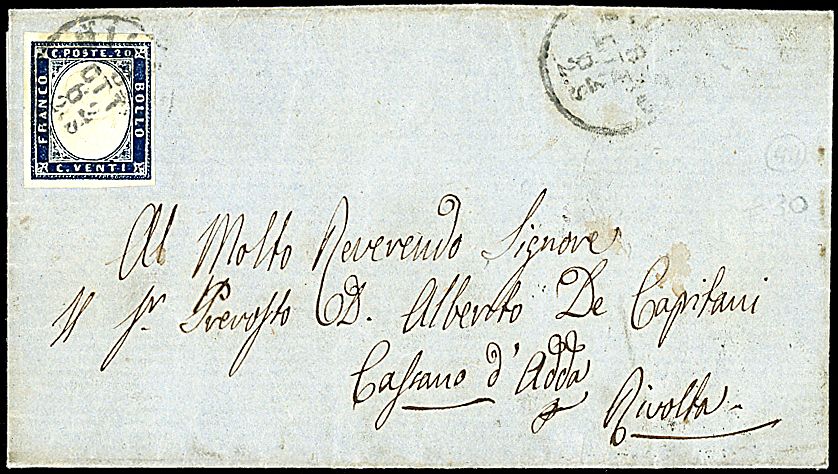 C. POSTE. 20
FRANCO
BOLLO
C. VENTI
Al Molto Reverendo Signore
Il Sr. Prevosto D. Alberto De Capitani
Cassano d'Adda
Rivolta
30